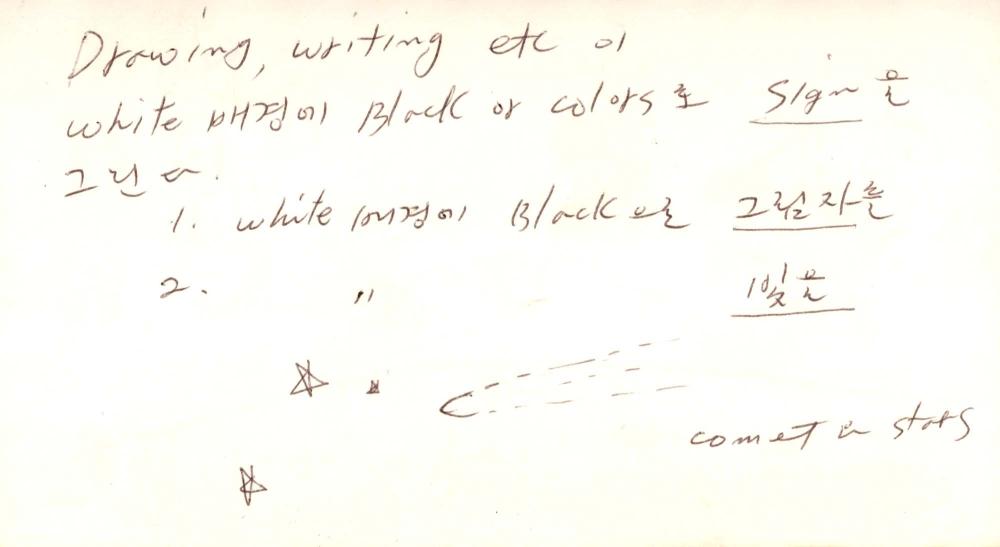 Drawing, writing etc 이
white 배경에 Black or colors로 sign을
그린다.
1. white 배경에 Black으로 그림자를
2. 〃 빛을
comet & stars